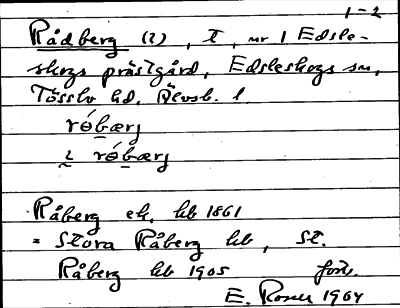 1-2
Rådberg (2), t, nr 1 Edsle-
skogs prästgård, Edsleskogs sn,
Tössbo hd. Älvsb. l
róbærj
i róbærj
Råberg ek. kb 1861
= Stora Råberg kb, St.
Råberg kb 1905 forts.
E. Rosell 1964